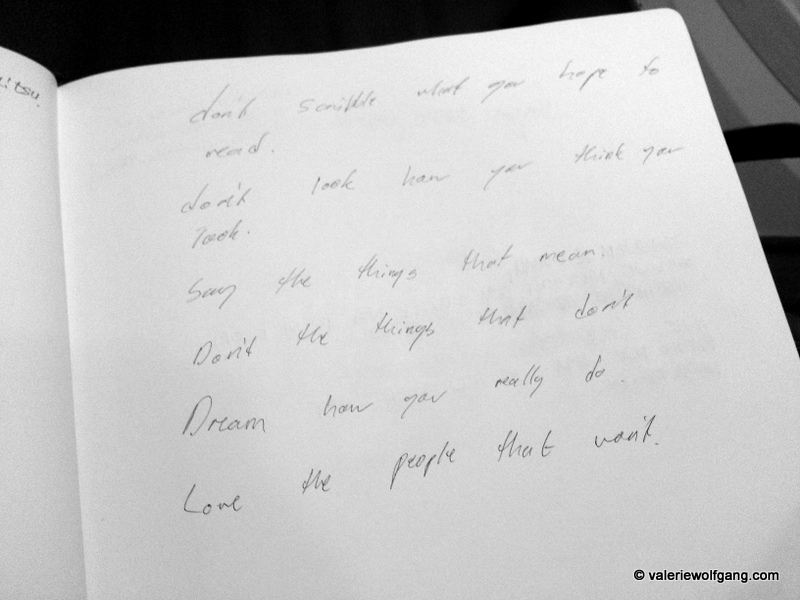 itsu.
don't scribble what you hope to
read.
don't look how you think you
look.
Say the things that mean.
Don't the things that don't
Dream how you really do.
Love the people that won't.
© valeriewolfgang.com